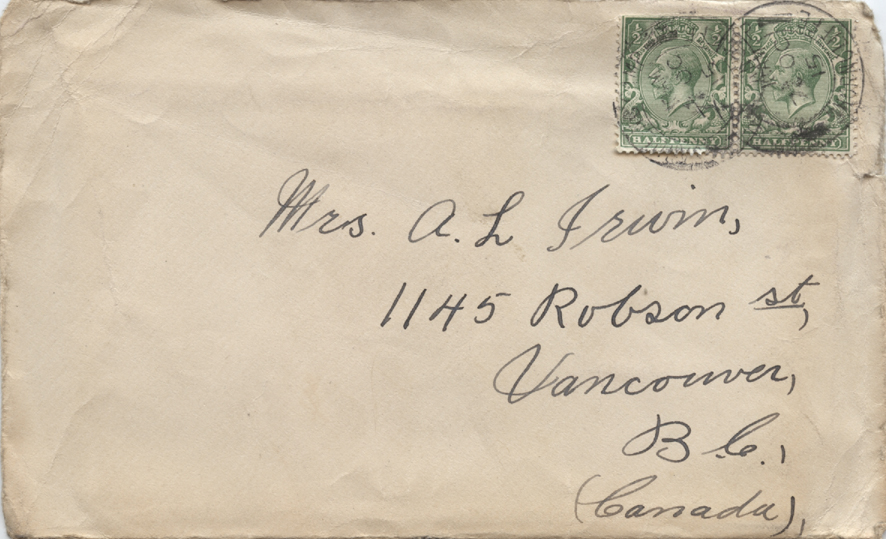 HALFPENNY HALFPENNY
Mrs. A. L Irwin,
1145 Robson st,
Vancouver,
B.C.,
(Canada),